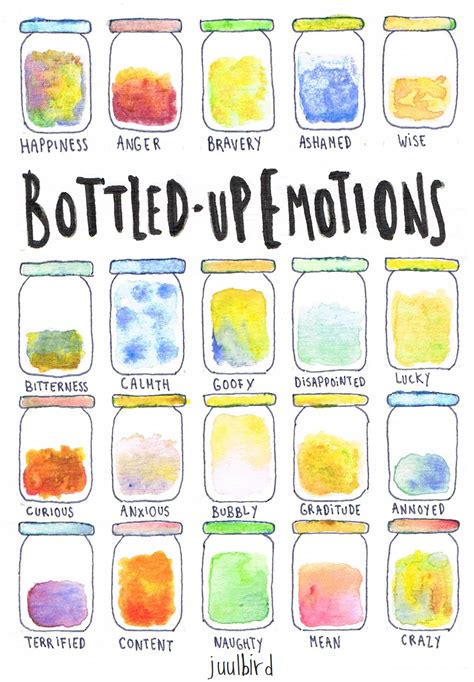 HAPPINESS ANGER BRAVERY ASHAMED WISE
BOTTLED-UP EMOTIONS
BITTERNESS CALMTH GOOFY DISAPPOINTED LUCKY
CURIOUS ANXIOUS BUBBLY GRADITUDE ANNOYED
TERRIFIED CONTENT NAUGHTY MEAN CRAZY
juulbird